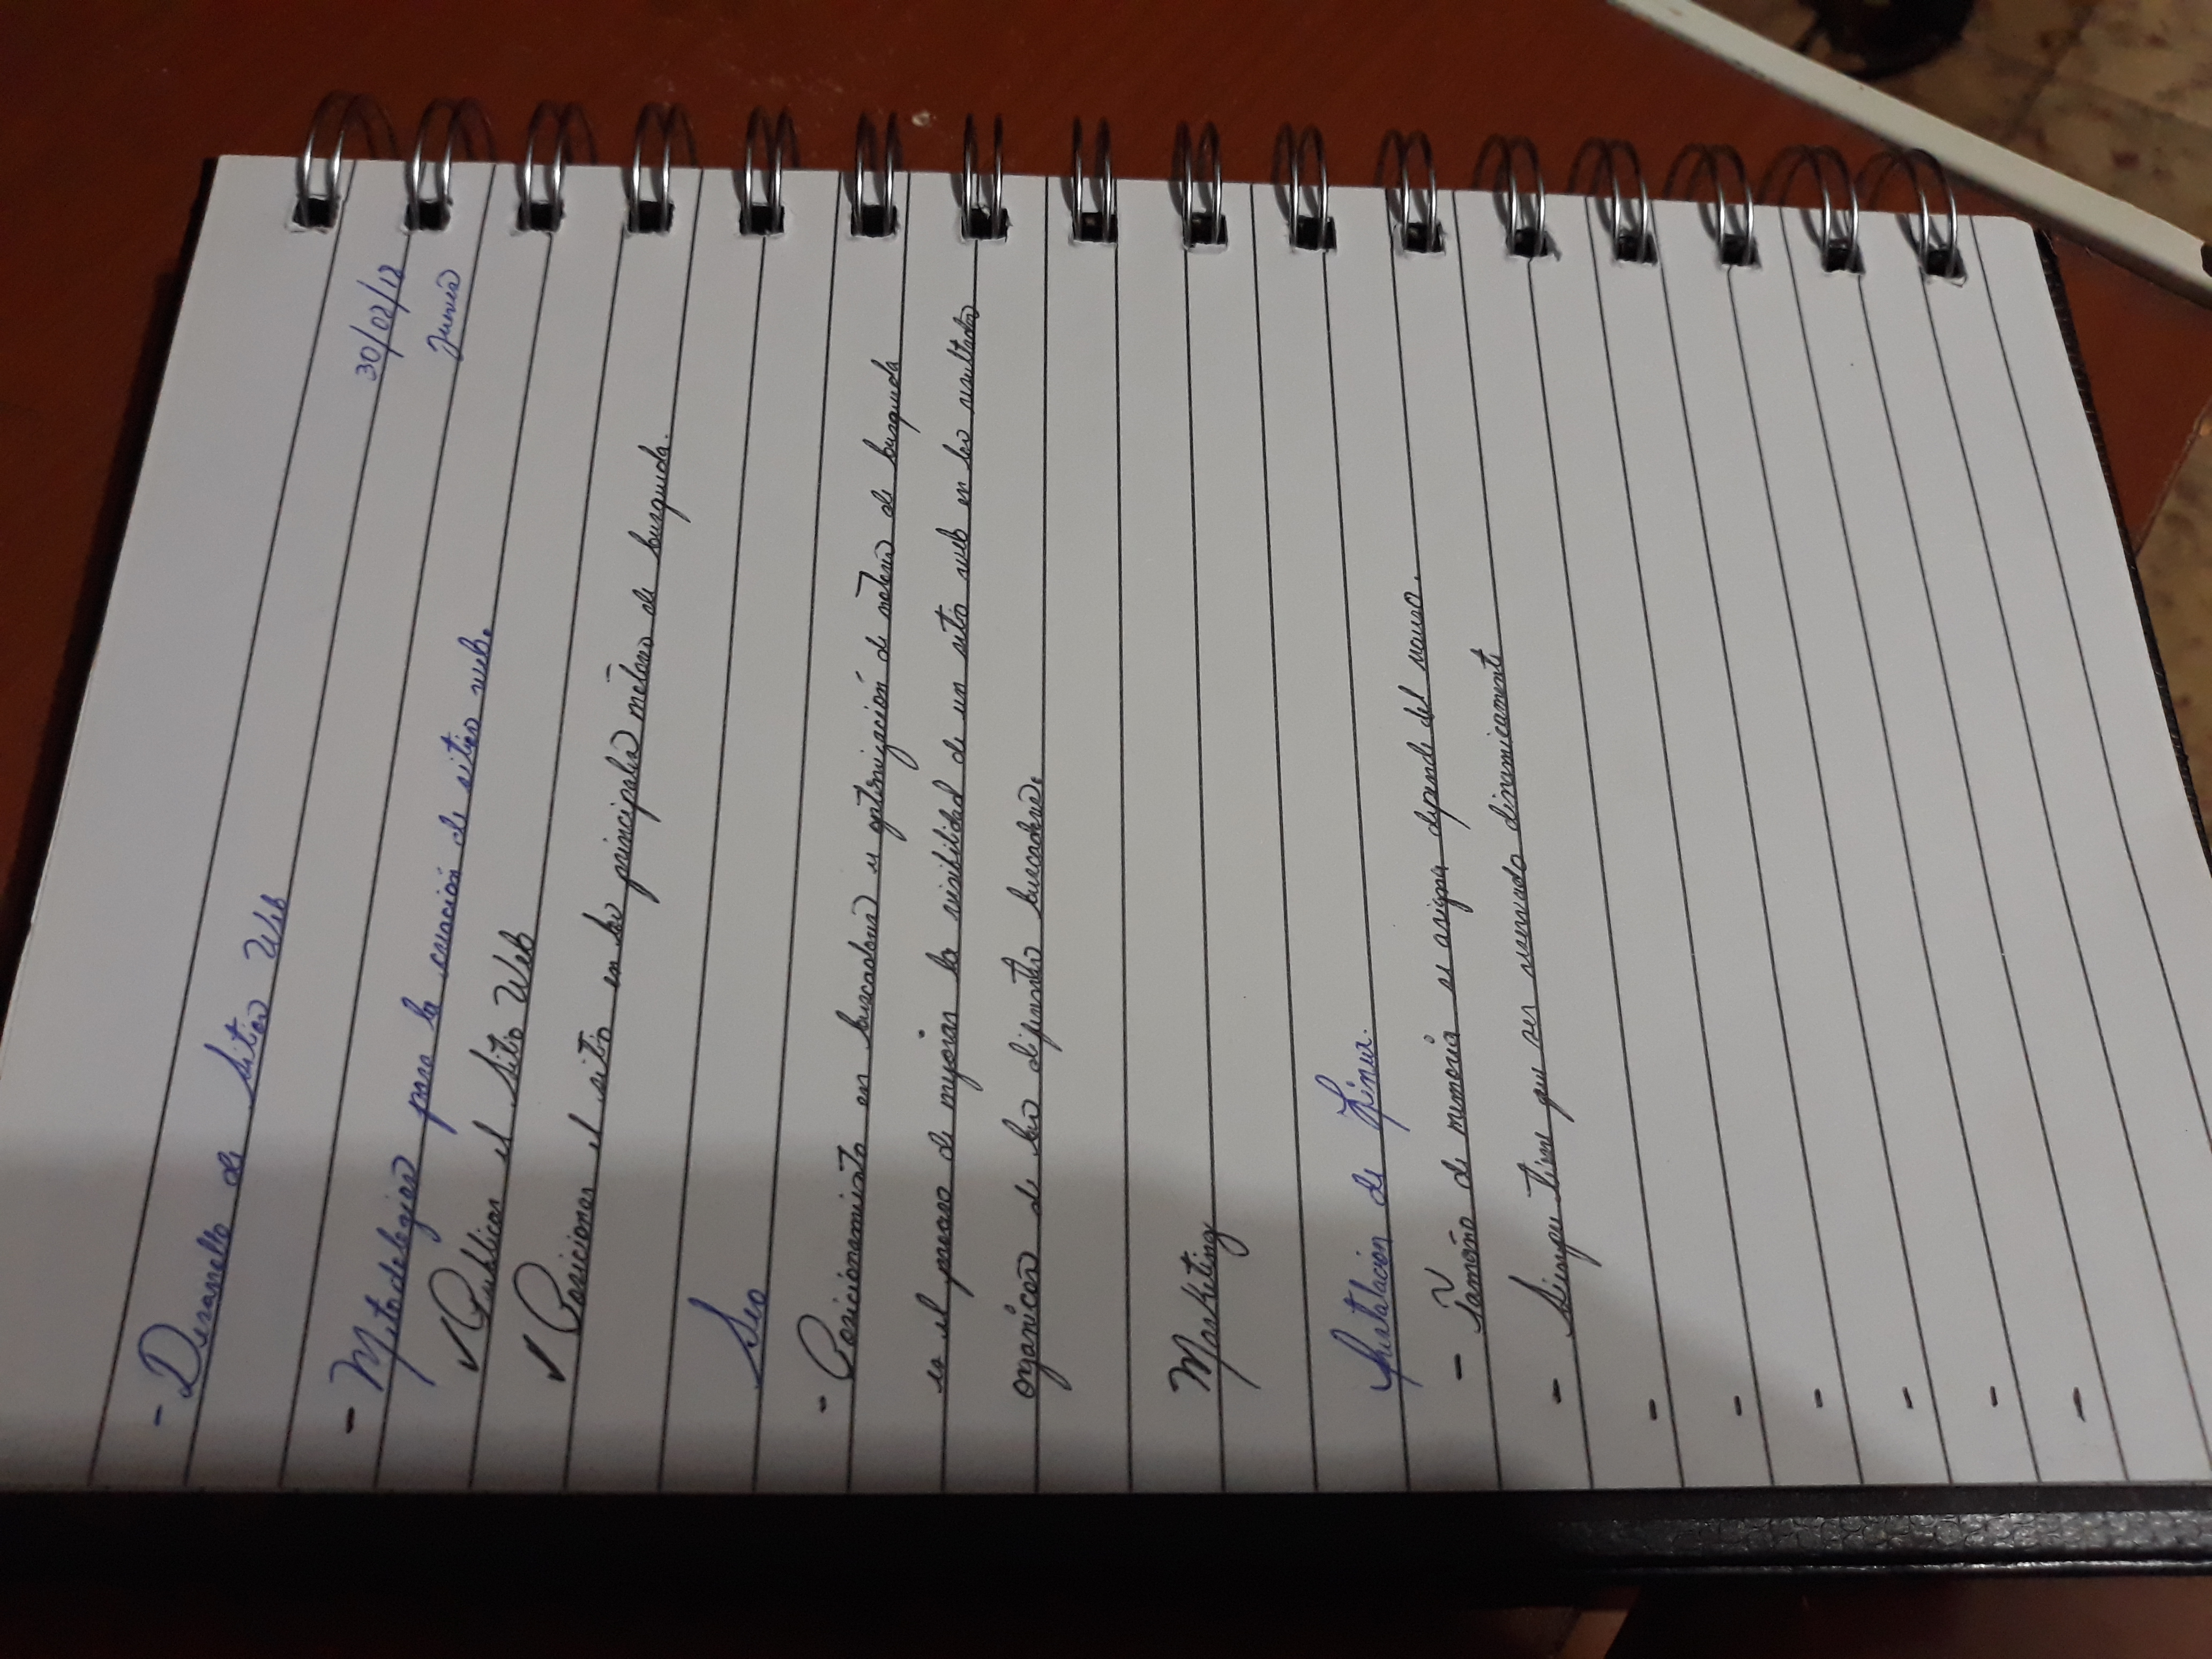 - Desarrollo de Sitios Web
30/02/18
- Metodologias para la creación de sitios web.
Jueves
✓ Publicar el Sitio Web
✓ Posicionar el sitio en los principales motores de busqueda.
Seo
- Posicionamiento en buscadores y optimización de motores de busqueda
es el proceso de mejorar la visibilidad de un sitio web en los resultados
organicos de los diferentes buscadores.
Marketing
Instalación de Linux.
- Tamaño de memoria se asigna depende del
- Siempre tiene que ser reservado dinamicamente
-
-
-
-
-
-